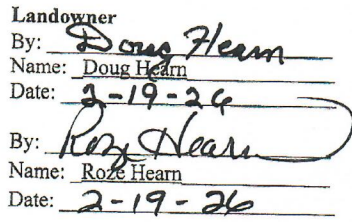 Landowner
By: Doug Hearn
Name: Doug Hearn
Date: 2-19-26
By: Roze Hearn
Name: Roze Hearn
Date: 2-19-26